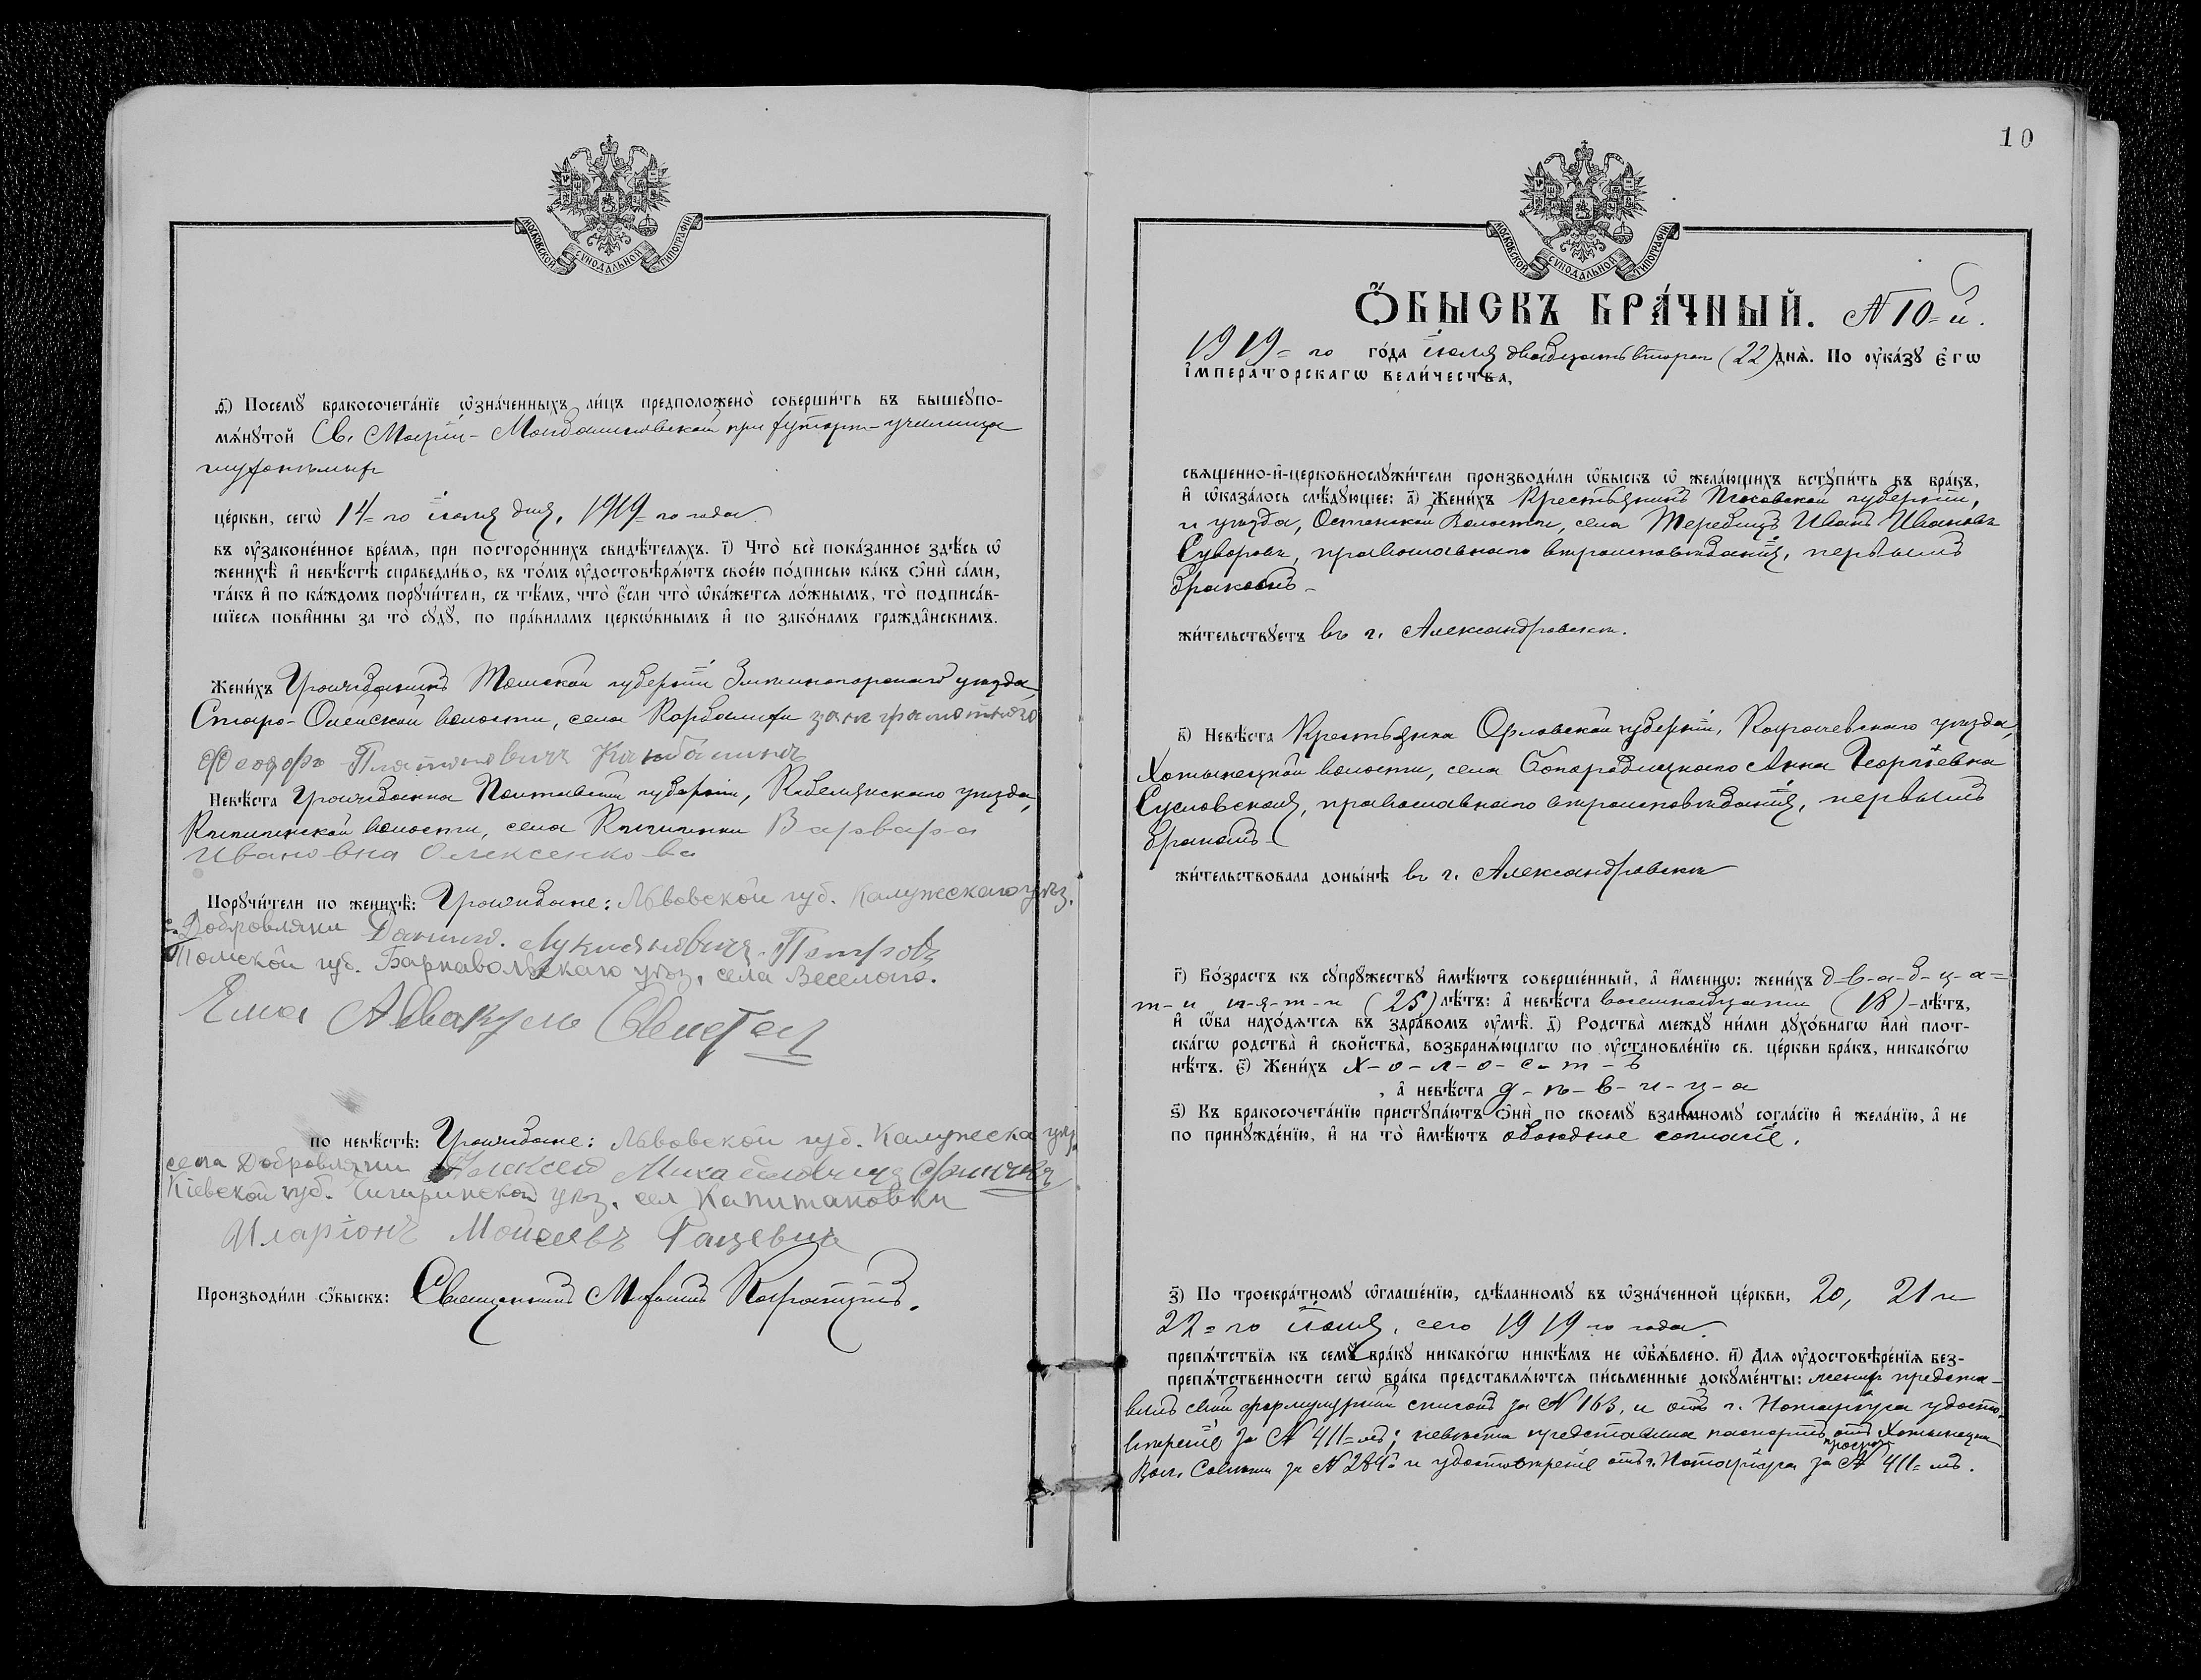 МОСКОВСКОЙ СУНОДАЛЬНОЙ ТИПОГРАФІИ
ѳ҃) Посемꙋ̀ бракосочета́нїе ѡ҆зна́ченныхъ ли́цъ предположено̀ соверши́ть въ вышеꙋпо-
мѧ́нꙋтой Св. Маріи-
це́ркви, сегѡ̀ 14-го дня, 1919-го года
въ ᲂу҆законе́нное вре́мѧ, при посторо́ннихъ свидѣ́телѧхъ. і҃) Что̀ всѐ пока́занное здѣ́сь ѡ҆
женихѣ̀ и҆ невѣ́стѣ справедли́во, въ то́мъ ᲂу҆достовѣрѧ́ютъ свое́ю по́дписью ка́къ ѻ҆нѝ са́ми,
та́къ и҆ по ка́ждомъ порꙋчи́тели, съ тѣ́мъ, что̀ є҆́сли что̀ ѡ҆ка́жетсѧ ло́жнымъ, то̀ подписа́в-
шїесѧ пови́нны за то̀ сꙋдꙋ̀, по пра́виламъ церкѡ́внымъ и҆ по зако́намъ гражда̑нскимъ.
Жени́хъ Гражданинъ Томской губерніи Змѣиногорскаго уѣзда,
Старо- волости, села
Феодоръ Платоновичъ
Невѣ́ста Гражданка Полтавской губерніи, Кобелякскаго уѣзда,
волости, села Варвара
Ивановна Олексенкова
Порꙋчи́тели по женихѣ̀: Граждане: Львовской губ. Калужскаго уѣз.
с. Добровляни Данило Лукиановичъ Петровъ
Томской губ. Барнавольскаго уѣз. села Веселаго.
Аввакумъ
по невѣ́стѣ: Граждане: Львовской губ. Калужска уѣз
села Добровляни Алексей Михайловичъ
Кіевской губ. Чигиринской уѣз. сел Капитановки
Иларіонъ Мойсеевъ
Производи́ли ѻ҆́быскъ: Священникъ
10
МОСКОВСКОЙ СУНОДАЛЬНОЙ ТИПОГРАФІИ
Ѻ҆́БЫСКЪ БРА́ЧНЫЙ. N 10-й.
1919-го го́да іюля двадцать второго (22) днѧ̀. По ᲂу҆ка́зꙋ є҆гѡ̀
і҆мпера́торскагѡ вели́чества,
свѧще́нно-и҆-церковнослꙋжи́тели производи́ли ѡ҆́быскъ ѡ҆ жела́ющихъ встꙋпи́ть въ бра́къ,
и҆ ѡ҆каза́лось слѣ́дꙋющее: а҃) Жени́хъ Крестьянинъ Псковской губерніи,
и уѣзда, Остенской волости, села Теребищъ Иванъ Ивановъ
Суворовъ, православнаго вѣроисповѣданія, первымъ
бракомъ
жи́тельствꙋетъ въ г. Александровскѣ.
в҃) Невѣ́ста Крестьянка Орловской губерніи, Карачевскаго уѣзда,
Хотынецкой волости, села Богородицкаго Анна Георгіевна
Сусловская, православнаго вѣроисповѣданія, первымъ
бракомъ
жи́тельствовала доны́нѣ въ г. Александровскѣ
г҃) Во́зрастъ къ сꙋпрꙋ́жествꙋ и҆мѣ́ютъ соверше́нный, а҆ и҆́менно: жени́хъ д-в-а-д-ц-а-
т-и п-я-т-и (25) лѣ́тъ: а҆ невѣ́ста восемнадцати (18)-лѣ́тъ,
и҆ ѡ҆́ба нахо́дѧтсѧ въ здра́вомъ ᲂу҆мѣ̀. д҃) Родства̀ междꙋ̀ ни́ми дꙋхо́внагѡ и҆лѝ пло́т-
скагѡ родства̀ и҆ сво́йства̀, возбранѧ́ющагѡ по ᲂу҆становле́нїю св. це́ркви бра́къ, никако́гѡ
нѣ́тъ. є҃) Жени́хъ х-о-л-о-с-т-ъ
, а҆ невѣ́ста д-ѣ-в-и-ц-а
ѕ҃) Къ бракосочета́нїю пристꙋпа́ютъ ѻ҆нѝ по своемꙋ̀ взаи́мномꙋ согла́сїю и҆ жела́нїю, а҆ не
по принꙋжде́нїю, и҆ на то̀ и҆мѣ́ютъ обоюдное согласіе.
з҃) По троекра́тномꙋ ѡ҆глаше́нїю, сдѣ́ланномꙋ въ ѡ҆зна́ченной це́ркви, 20, 21 и
22-го іюля, сего 1919-го года
препѧ́тствїѧ къ семꙋ̀ бра́кꙋ никако́гѡ никѣ́мъ не ѡ҆б̾ѧ́влено. и҃) Длѧ ᲂу҆достовѣре́нїѧ без-
препѧ́тственности сегѡ̀ бра́ка представлѧ́ютсѧ пи́сьменные докꙋме́нты: женихъ предста-
вилъ свой формулярный списокъ за N 163, и отъ г. Нотаріуса удосто-
вѣреніе за N 411-мъ; невѣста представила паспортъ отъ
Вол. за N 284 и удостовѣреніе отъ г. Нотаріуса за N 411-мъ.